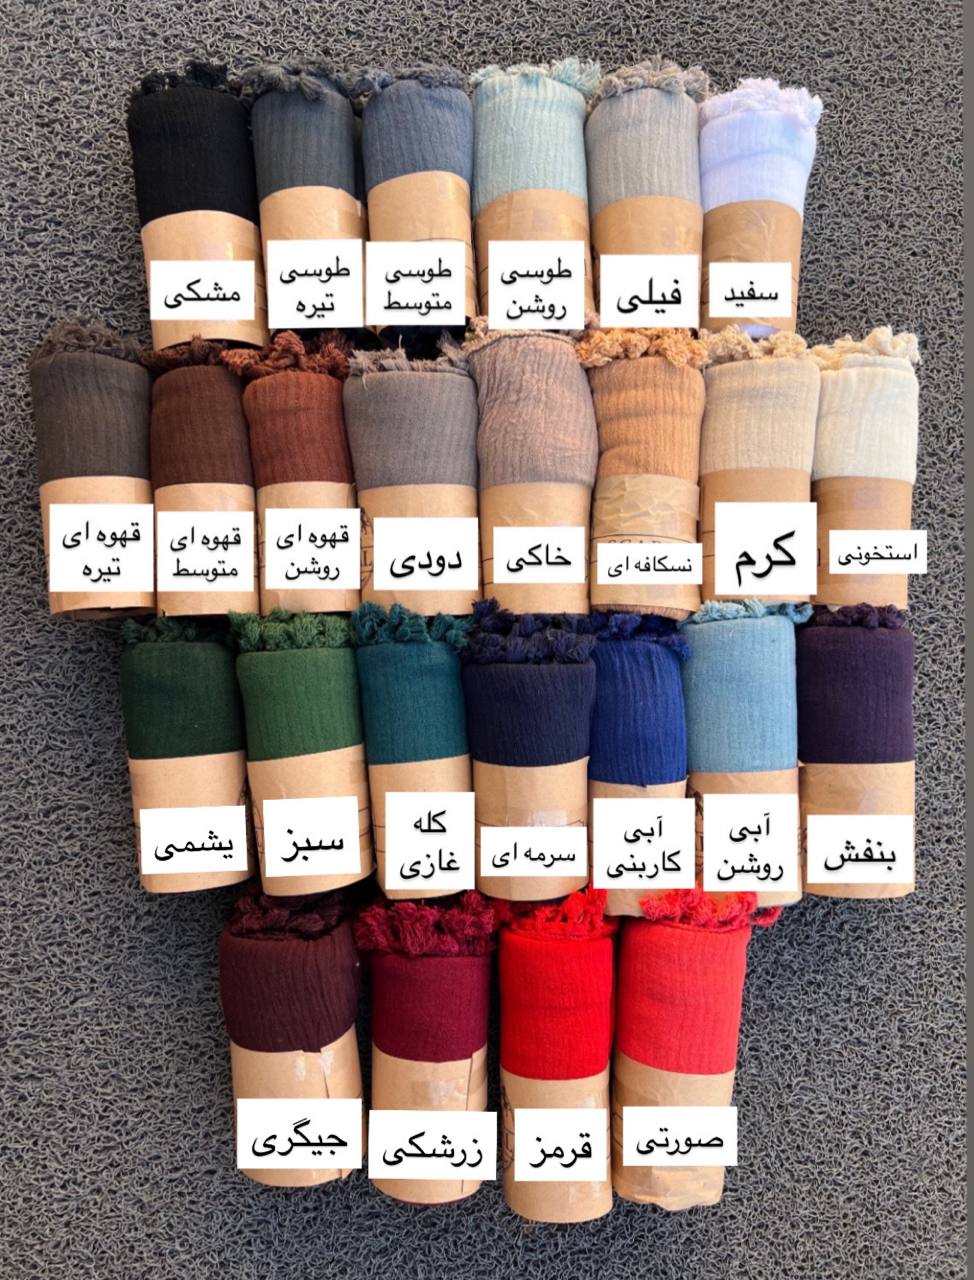 سفید
فیلی
طوسی
روشن
طوسی
متوسط
طوسی
تیره
مشکی
استخونی
کرم
نسکافه ای
خاکی
دودی
قهوه ای
روشن
قهوه ای
متوسط
قهوه ای
تیره
بنفش
آبی
روشن
آبی
کاربنی
سرمه ای
کله
غازی
سبز
یشمی
صورتی
قرمز
زرشکی
جیگری